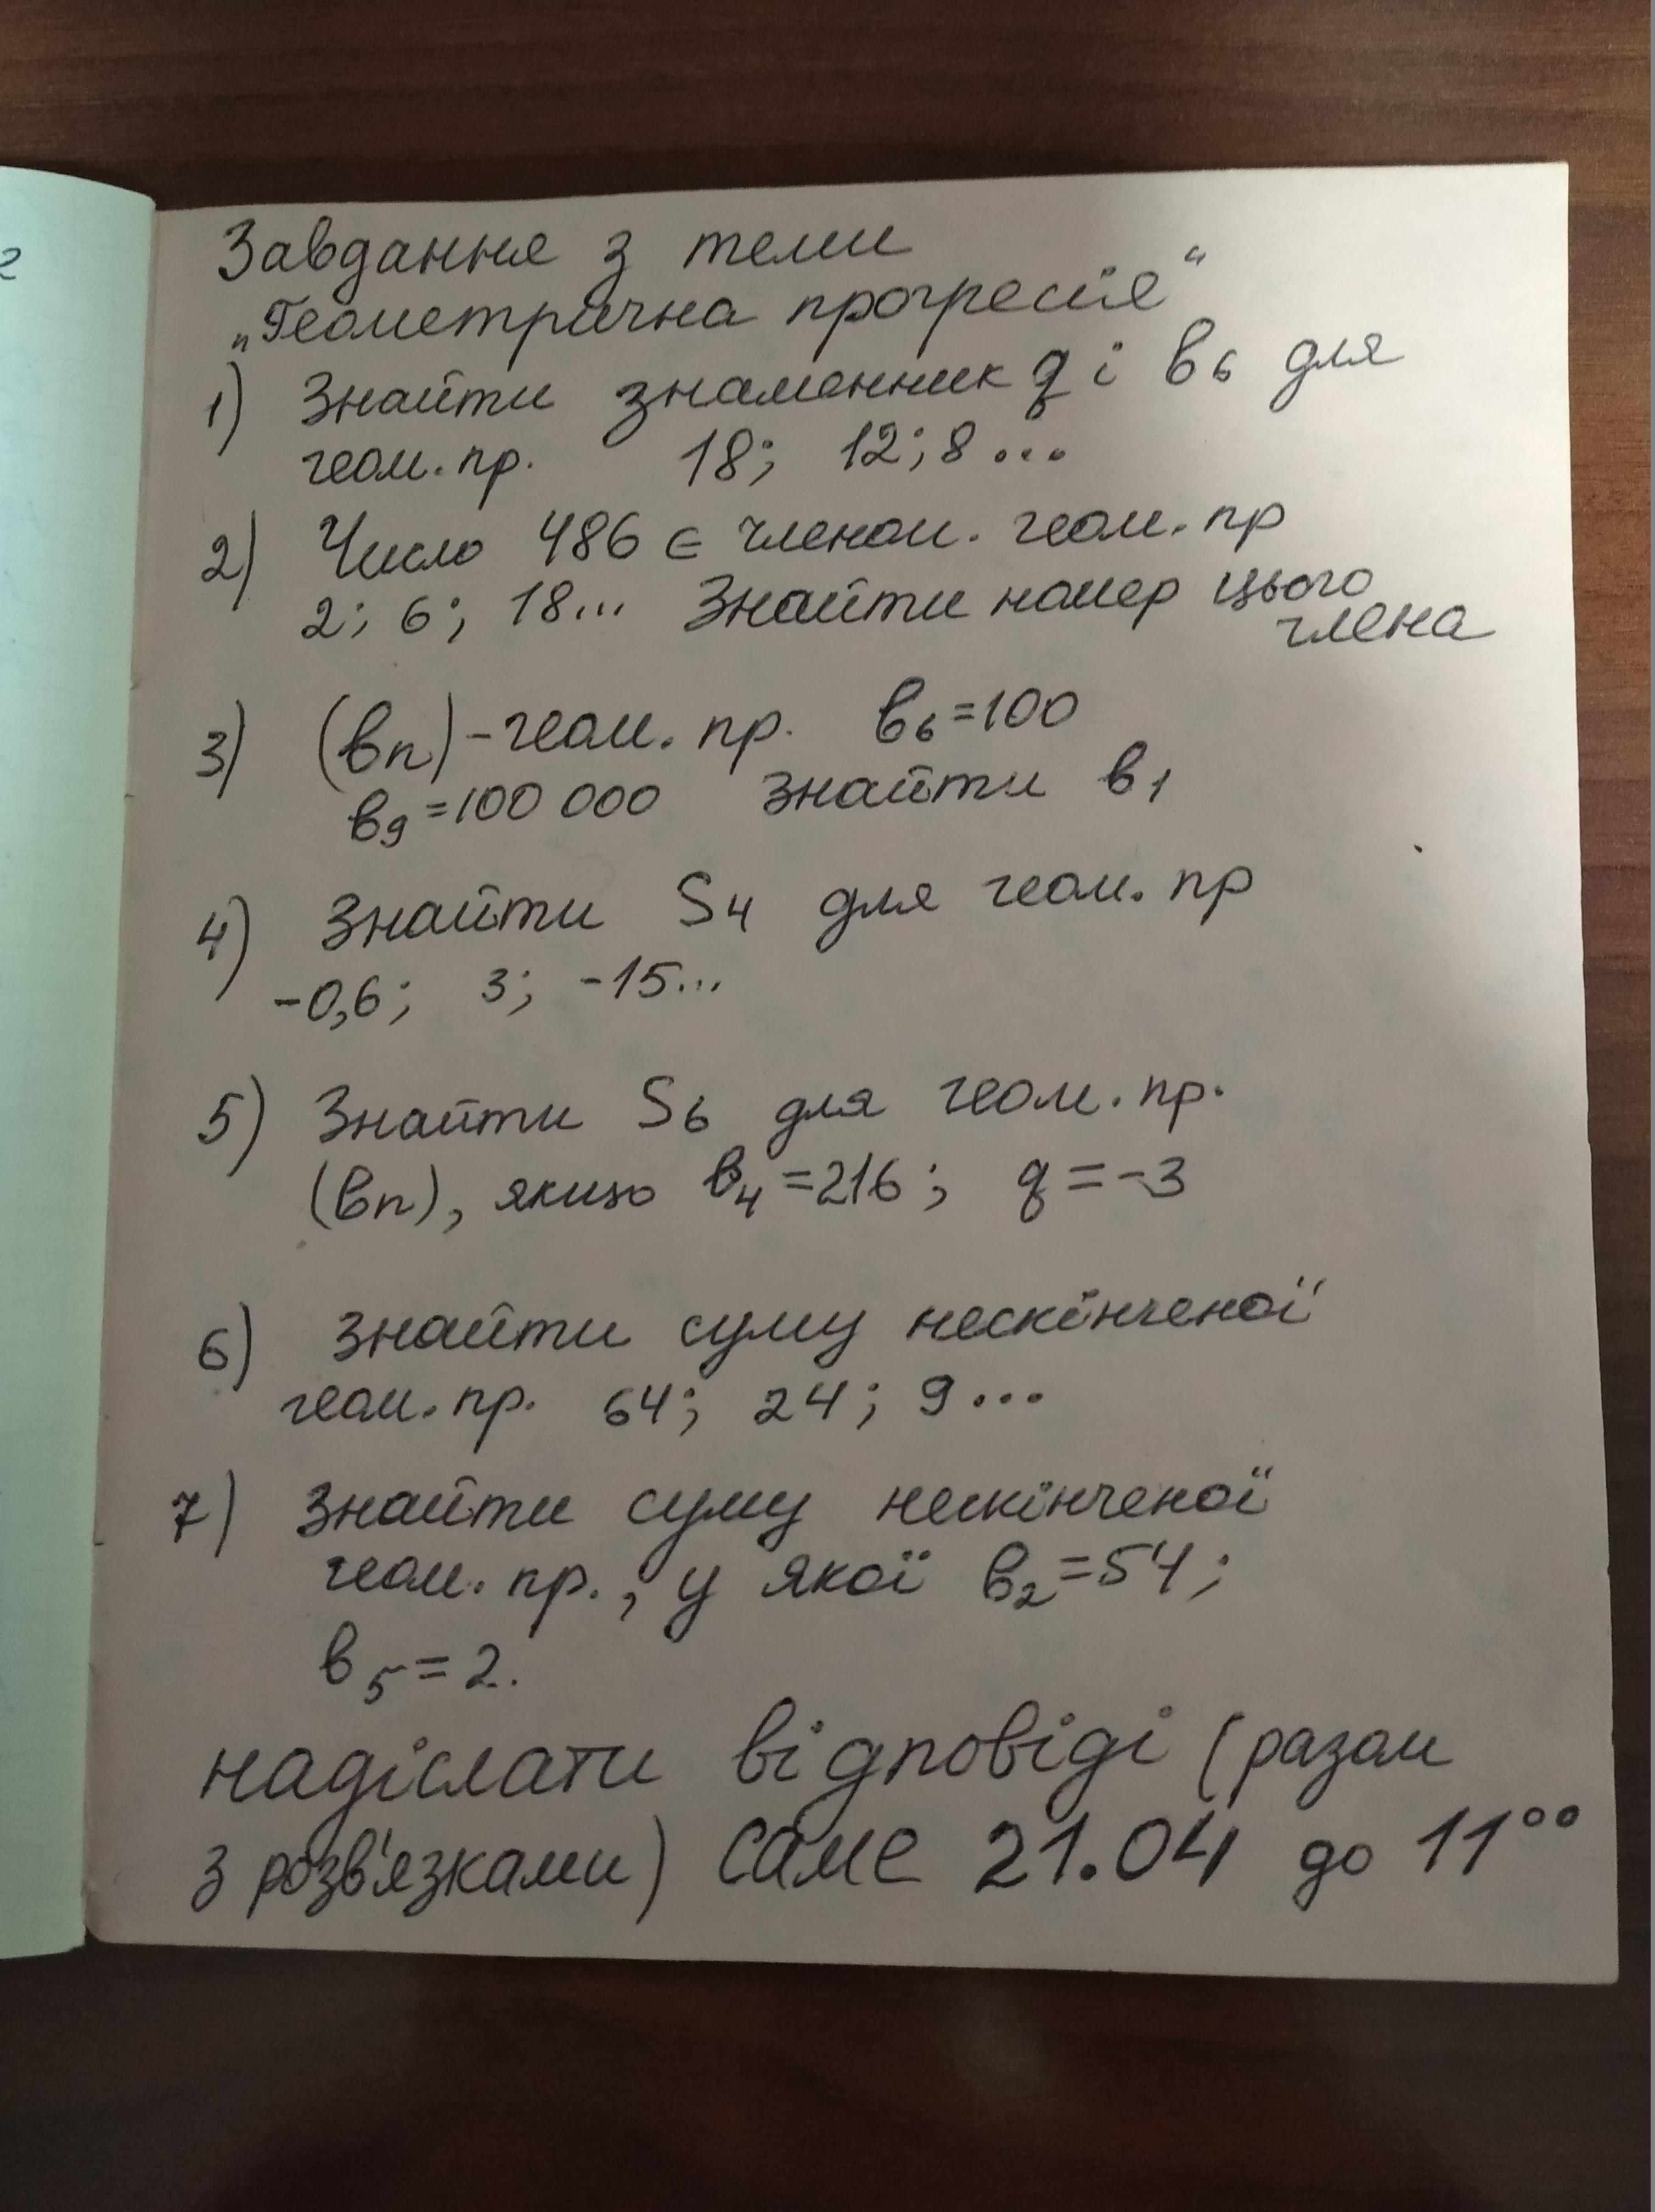 Завдання з теми
„Геометрична прогресія“
1) Знайти знаменник q і b₆ для
геом. пр. 18; 12; 8...
2) Число 486 є членом. геом. пр
2; 6; 18... Знайти номер цього
члена
3) (bn) - геом. пр. b₆=100
b₉=100 000 знайти b₁
4) Знайти S₄ для геом. пр
-0,6; 3; -15...
5) Знайти S₆ для геом. пр.
(bn), якщо b₄=216; q=-3
6) Знайти суму нескінченої
геом. пр. 64; 24; 9...
7) Знайти суму нескінченої
геом. пр., у якої b₂=54;
b₅=2.
надіслати відповіді (разом
з розв'язками) саме 21.04 до 11⁰⁰